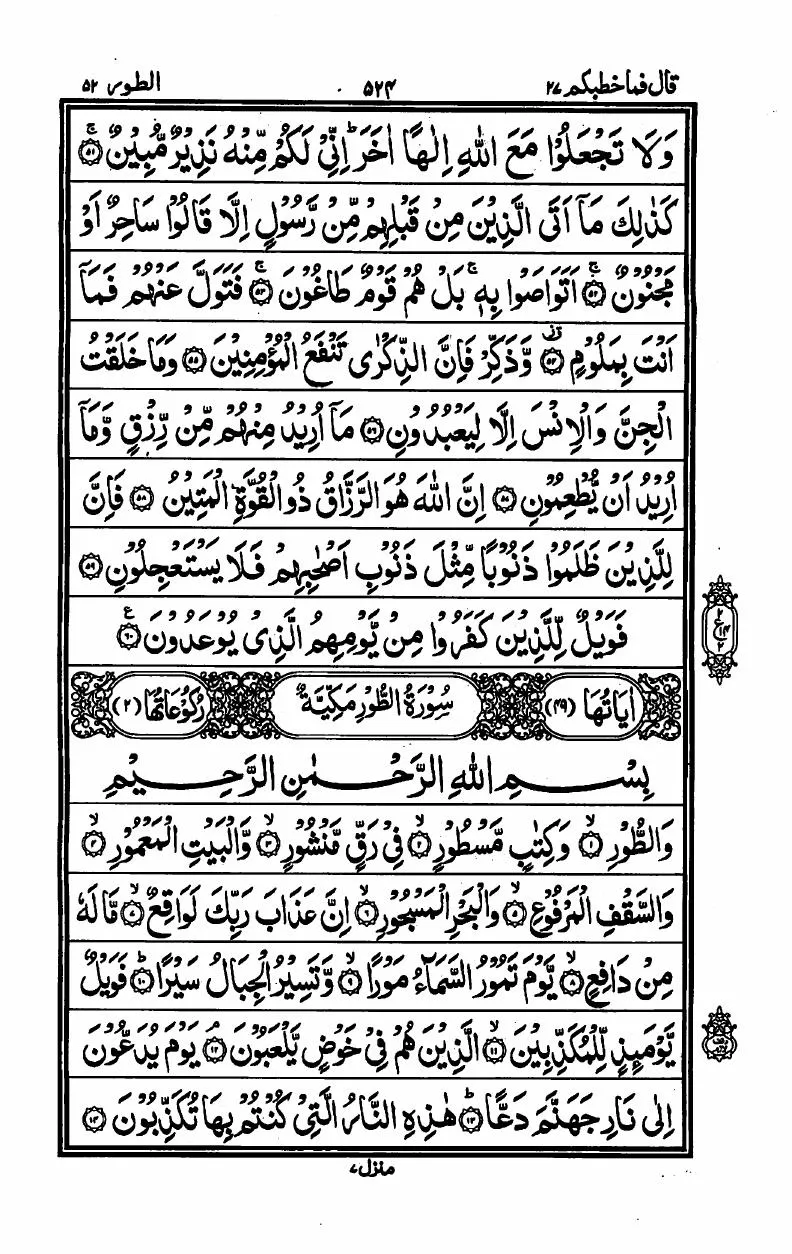 قال فما خطبكم ۲۷ ۵۲۴ الطور ۵۲
وَلَا تَجْعَلُوْا مَعَ اللّٰهِ اِلٰهًا اٰخَرَ ؕ اِنِّىْ لَكُمْ مِّنْهُ نَذِيْرٌ مُّبِيْنٌ ۚ ﴿۵۱﴾
كَذٰلِكَ مَاۤ اَتَى الَّذِيْنَ مِنْ قَبْلِهِمْ مِّنْ رَّسُوْلٍ اِلَّا قَالُوْا سَاحِرٌ اَوْ
مَجْنُوْنٌ ۚ ﴿۵۲﴾ اَتَوَاصَوْا بِهٖ ۚ بَلْ هُمْ قَوْمٌ طَاغُوْنَ ۚ ﴿۵۳﴾ فَتَوَلَّ عَنْهُمْ فَمَاۤ
اَنْتَ بِمَلُوْمٍ ﴿۵۴﴾ وَّذَكِّرْ فَاِنَّ الذِّكْرٰى تَنْفَعُ الْمُؤْمِنِيْنَ ﴿۵۵﴾ وَمَا خَلَقْتُ
الْجِنَّ وَالْاِنْسَ اِلَّا لِيَعْبُدُوْنِ ﴿۵۶﴾ مَاۤ اُرِيْدُ مِنْهُمْ مِّنْ رِّزْقٍ وَّمَاۤ
اُرِيْدُ اَنْ يُّطْعِمُوْنِ ﴿۵۷﴾ اِنَّ اللّٰهَ هُوَ الرَّزَّاقُ ذُو الْقُوَّةِ الْمَتِيْنُ ﴿۵۸﴾ فَاِنَّ
لِلَّذِيْنَ ظَلَمُوْا ذَنُوْبًا مِّثْلَ ذَنُوْبِ اَصْحٰبِهِمْ فَلَا يَسْتَعْجِلُوْنِ ﴿۵۹﴾
فَوَيْلٌ لِّلَّذِيْنَ كَفَرُوْا مِنْ يَّوْمِهِمُ الَّذِىْ يُوْعَدُوْنَ ﴿۶۰﴾ ع
اٰيَاتُهَا (۴۹) سُوْرَةُ الطُّوْرِ مَكِّيَّةٌ رُكُوْعَاتُهَا (۲)
بِسْمِ اللّٰهِ الرَّحْمٰنِ الرَّحِيْمِ
وَالطُّوْرِ ۙ ﴿۱﴾ وَكِتٰبٍ مَّسْطُوْرٍ ۙ ﴿۲﴾ فِىْ رَقٍّ مَّنْشُوْرٍ ۙ ﴿۳﴾ وَّالْبَيْتِ الْمَعْمُوْرِ ۙ ﴿۴﴾
وَالسَّقْفِ الْمَرْفُوْعِ ۙ ﴿۵﴾ وَالْبَحْرِ الْمَسْجُوْرِ ۙ ﴿۶﴾ اِنَّ عَذَابَ رَبِّكَ لَوَاقِعٌ ۙ ﴿۷﴾ مَّا لَهٗ
مِنْ دَافِعٍ ۙ ﴿۸﴾ يَّوْمَ تَمُوْرُ السَّمَآءُ مَوْرًا ۙ ﴿۹﴾ وَّتَسِيْرُ الْجِبَالُ سَيْرًا ؕ ﴿۱۰﴾ فَوَيْلٌ
يَّوْمَئِذٍ لِّلْمُكَذِّبِيْنَ ۙ ﴿۱۱﴾ الَّذِيْنَ هُمْ فِىْ خَوْضٍ يَّلْعَبُوْنَ ۘ ﴿۱۲﴾ يَوْمَ يُدَعُّوْنَ
اِلٰى نَارِ جَهَنَّمَ دَعًّا ؕ ﴿۱۳﴾ هٰذِهِ النَّارُ الَّتِىْ كُنْتُمْ بِهَا تُكَذِّبُوْنَ ﴿۱۴﴾
منزل ۷